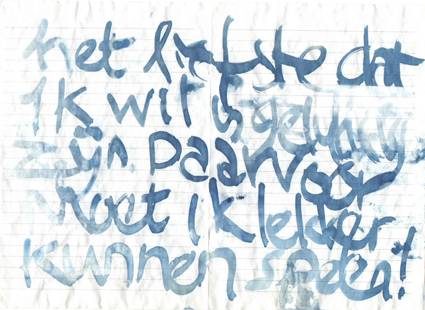 het liefste dat
ik wil is gelukkig
zijn. Daarvoor
moet ik lekker
kunnen spelen!